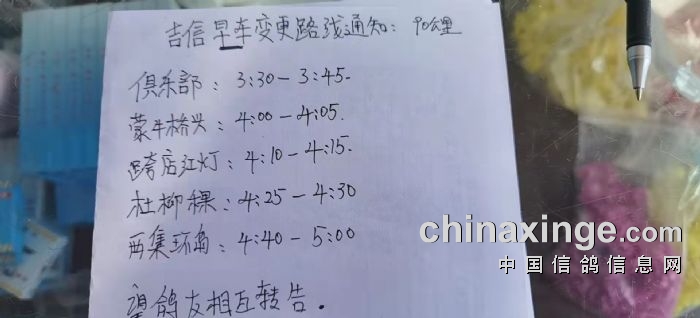 吉信早车变更路线通知：90公里
俱乐部：3:30-3:45.
蒙牛桥头：4:00-4:05.
跨店江灯：4:10-4:15.
杜柳棵：4:25-4:30
西集环岛：4:40-5:00
望鸽友相互转告.
chinaxinge.com
中国信鸽信息网